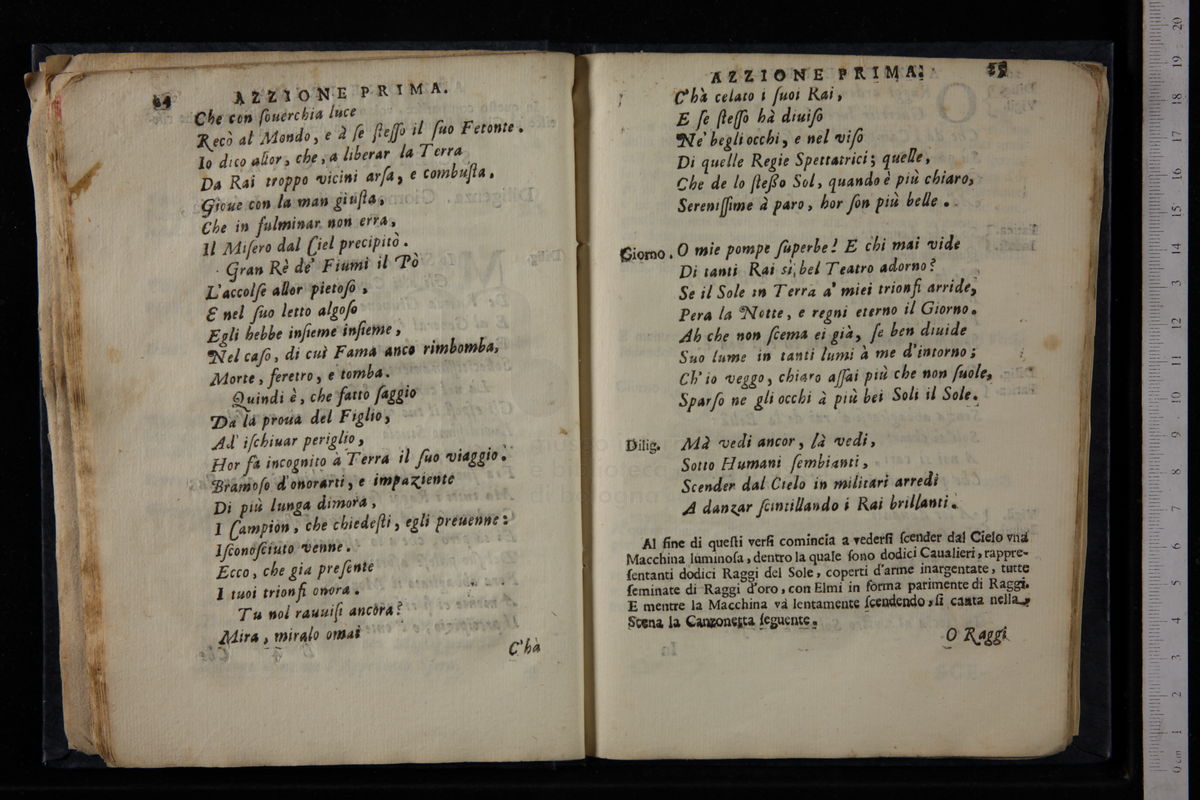 64 AZZIONE PRIMA.
Che con ſouerchia luce
Recò al Mondo, e à ſe ſteſſo il ſuo Fetonte.
Io dico allor, che, a liberar la Terra
Da Rai troppo vicini arſa, e combuſta,
Gioue con la man giuſta,
Che in fulminar non erra,
Il Miſero dal Ciel precipitò.
Gran Rè de' Fiumi il Pò
L'accolſe allor pietoſo,
E nel ſuo letto algoſo
Egli hebbe inſieme inſieme,
Nel caſo, di cui Fama anco rimbomba,
Morte, feretro, e tomba.
Quindi è, che fatto ſaggio
Da la proua del Figlio,
Ad' iſchiuar periglio,
Hor fà incognito à Terra il ſuo viaggio.
Bramoſo d'onorarti, e impaziente
Di più lunga dimora,
I Campion, che chiedeſti, egli preuenne:
Iſconoſciuto venne.
Ecco, che gia preſente
I tuoi trionfi onora.
Tu nol rauuiſi ancora?
Mira, miralo omai
C'hà
AZZIONE PRIMA.
C'hà celato i ſuoi Rai,
E ſe ſteſſo hà diuiſo
Ne' begli occhi, e nel viſo
Di quelle Regie Spettatrici; quelle,
Che de lo ſteßo Sol, quando è più chiaro,
Sereniſſime à paro, hor ſon più belle.
Giorno. O mie pompe ſuperbe! E chi mai vide
Di tanti Rai sì bel Teatro adorno?
Se il Sole in Terra a' miei trionfi arride,
Pera la Notte, e regni eterno il Giorno.
Ah che non ſcema ei già, ſe ben diuide
Suo lume in tanti lumi à me d'intorno;
Ch' io veggo, chiaro aſſai più che non ſuole,
Sparſo ne gli occhi à più bei Soli il Sole.
Dilig. Mà vedi ancor, là vedi,
Sotto Humani ſembianti,
Scender dal Cielo in militari arredi
A danzar ſcintillando i Rai brillanti.
Al fine di queſti verſi comincia a vederſi ſcender dal Cielo vna
Macchina luminoſa, dentro la quale ſono dodici Caualieri, rappre-
ſentanti dodici Raggi del Sole, coperti d'arme inargentate, tutte
ſeminate di Raggi d'oro, con Elmi in forma parimente di Raggi.
E mentre la Macchina và lentamente ſcendendo, ſi canta nella
Scena la Canzonetta ſeguente.
O Raggi